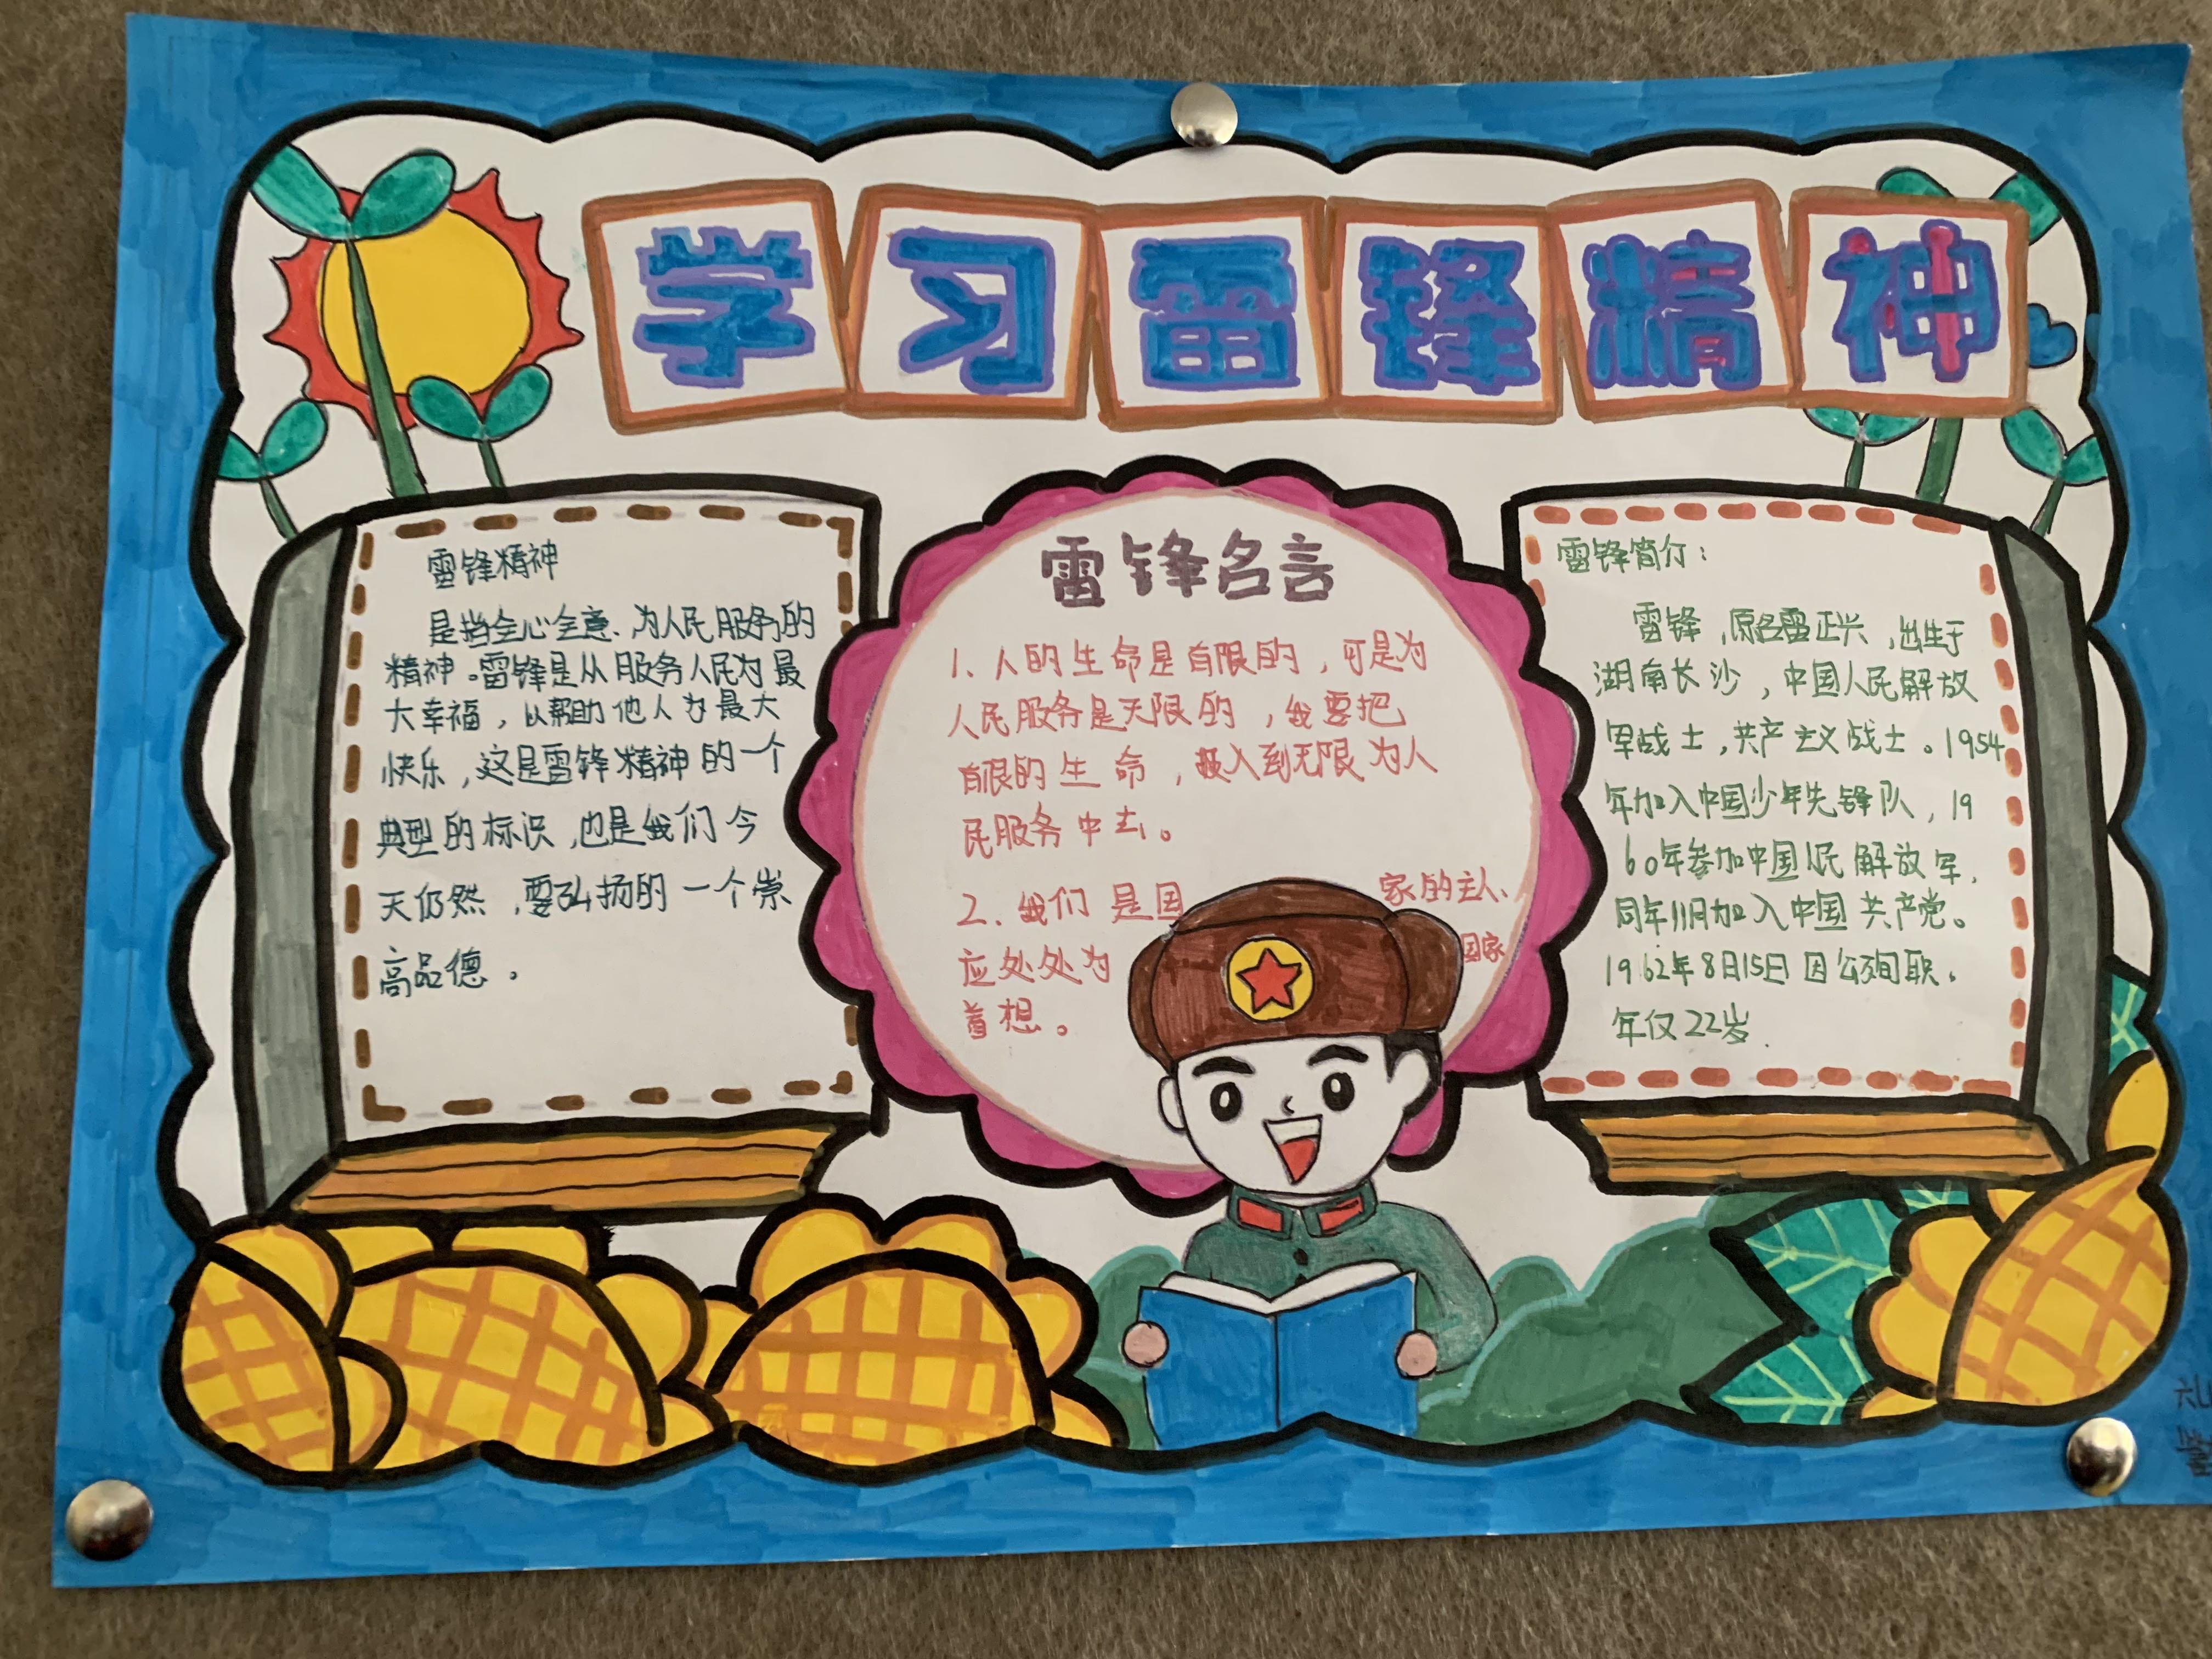 学习雷锋精神
雷锋精神
是指全心全意、为人民服务的
精神。雷锋是从服务人民为最
大幸福，以帮助他人为最大
快乐，这是雷锋精神的一个
典型的标识，也是我们今
天仍然，要弘扬的一个崇
高品德。
雷锋名言
1、人的生命是有限的，可是为
人民服务是无限的，我要把
有限的生命，投入到无限为人
民服务中去。
2、我们是国家的主人、
应处处为国家
着想。
雷锋简介：
雷锋，原名雷正兴，出生于
湖南长沙，中国人民解放
军战士，共产主义战士。1954
年加入中国少年先锋队，19
60年参加中国人民解放军，
同年11月加入中国共产党。
1962年8月15日因公殉职，
年仅22岁.